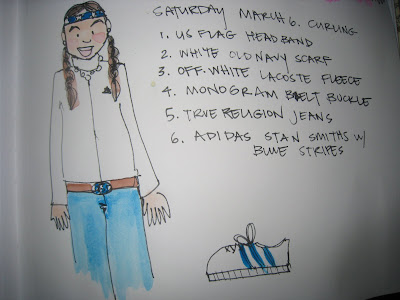 SATURDAY MARCH 6. CURLING
1. US FLAG HEADBAND
2. WHITE OLD NAVY SCARF
3. OFF-WHITE LACOSTE FLEECE
4. MONOGRAM BELT BUCKLE
5. TRUE RELIGION JEANS
6. ADIDAS STAN SMITHS W/
BLUE STRIPES